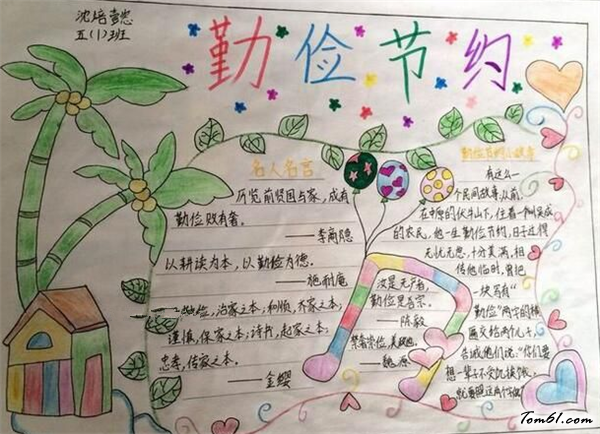 沈培
五(1)班
勤俭节约
名人名言
历览前贤国与家,成有
勤俭败有奢。
——李商隐
以耕读为本,以勤俭为德。
——施耐庵
勤俭,治家之本;和顺,齐家之本;
谨慎,保家之本;诗书,起家之本;
忠孝,传家之本。
——金缨
汝是无产者,
勤俭是吾宗。
——陈毅
——魏源
勤俭节约小故事
有这么一
个民间故事,从前,
在中原的伏牛山下,住着一个叫吴成
的农民,他一生勤俭节约,日子过得
无忧无愁,十分美满,相
传他临时,曾把
一块写有“
勤俭”两字的横
匾交给两个儿子,
告诫他们说:“你们要
想一辈子不受饥挨饿,
就要照这两个字做”
Tom61.com